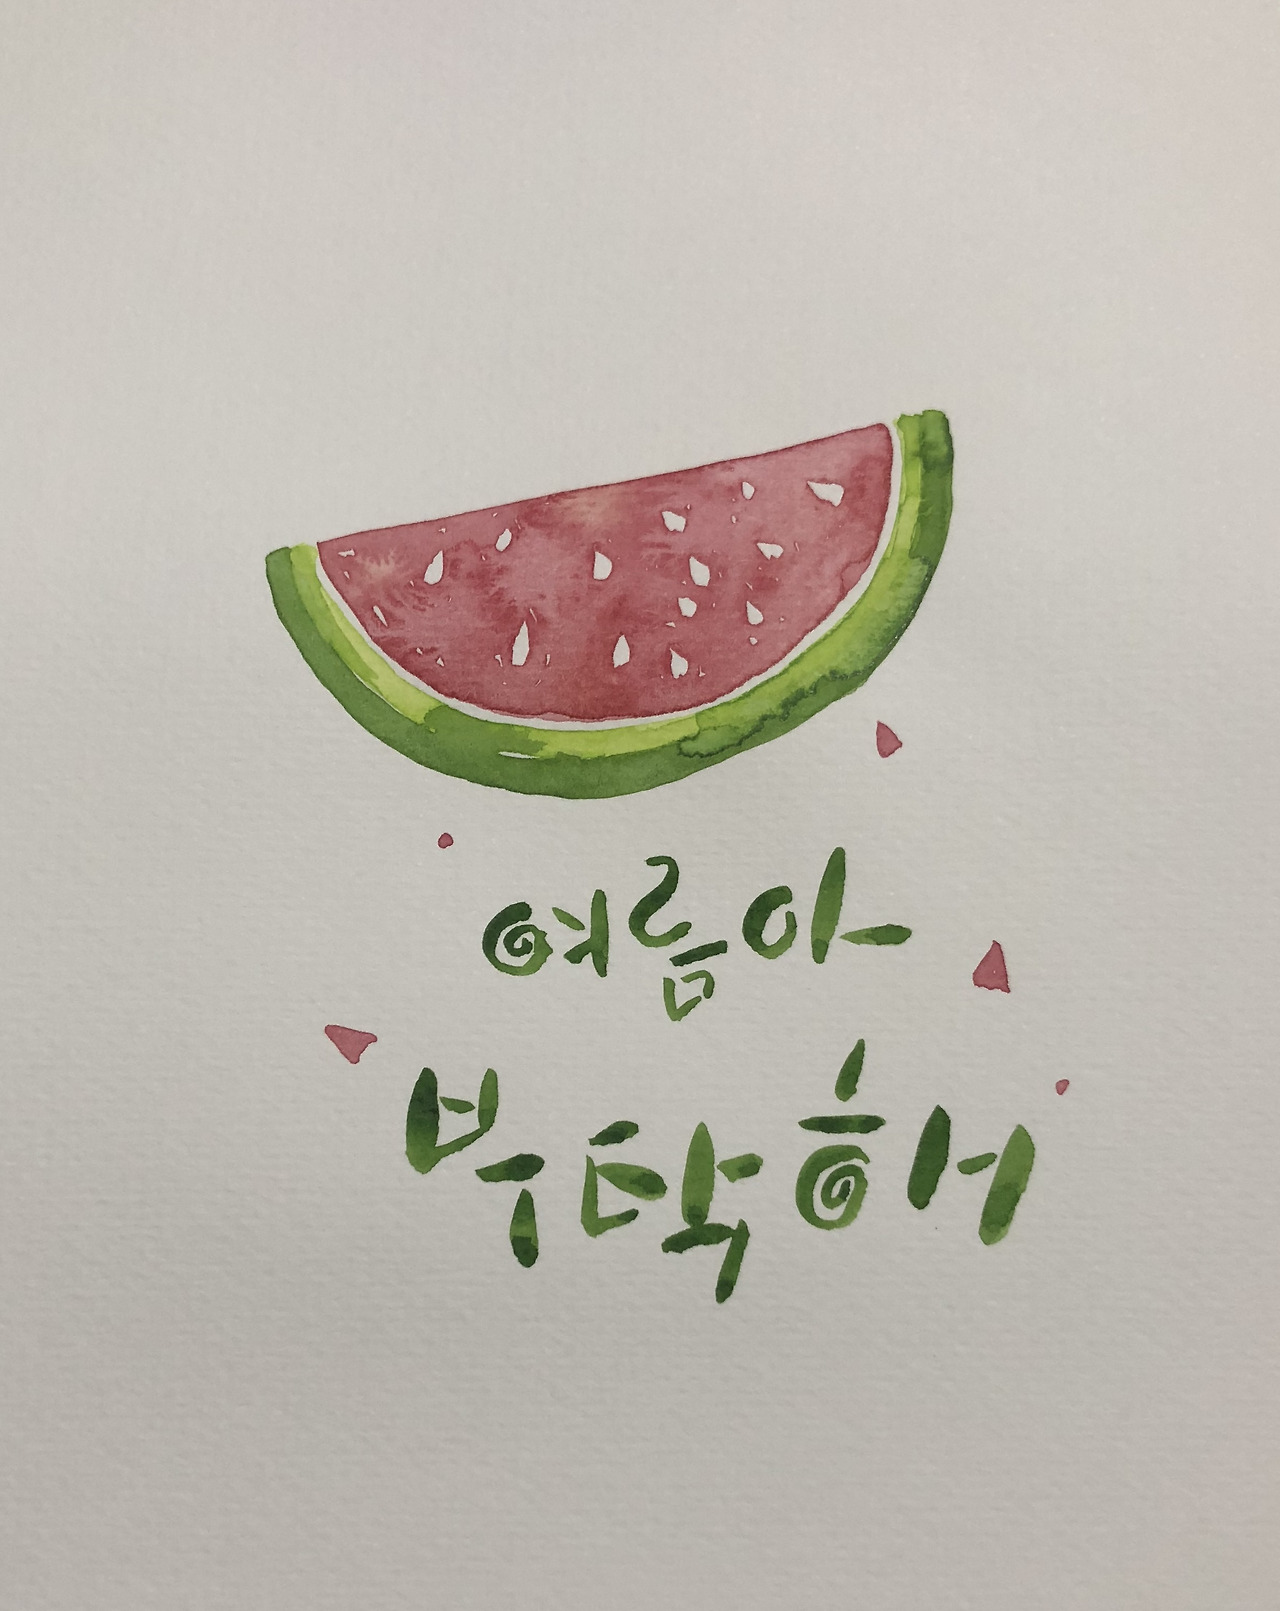 여름아
부탁해